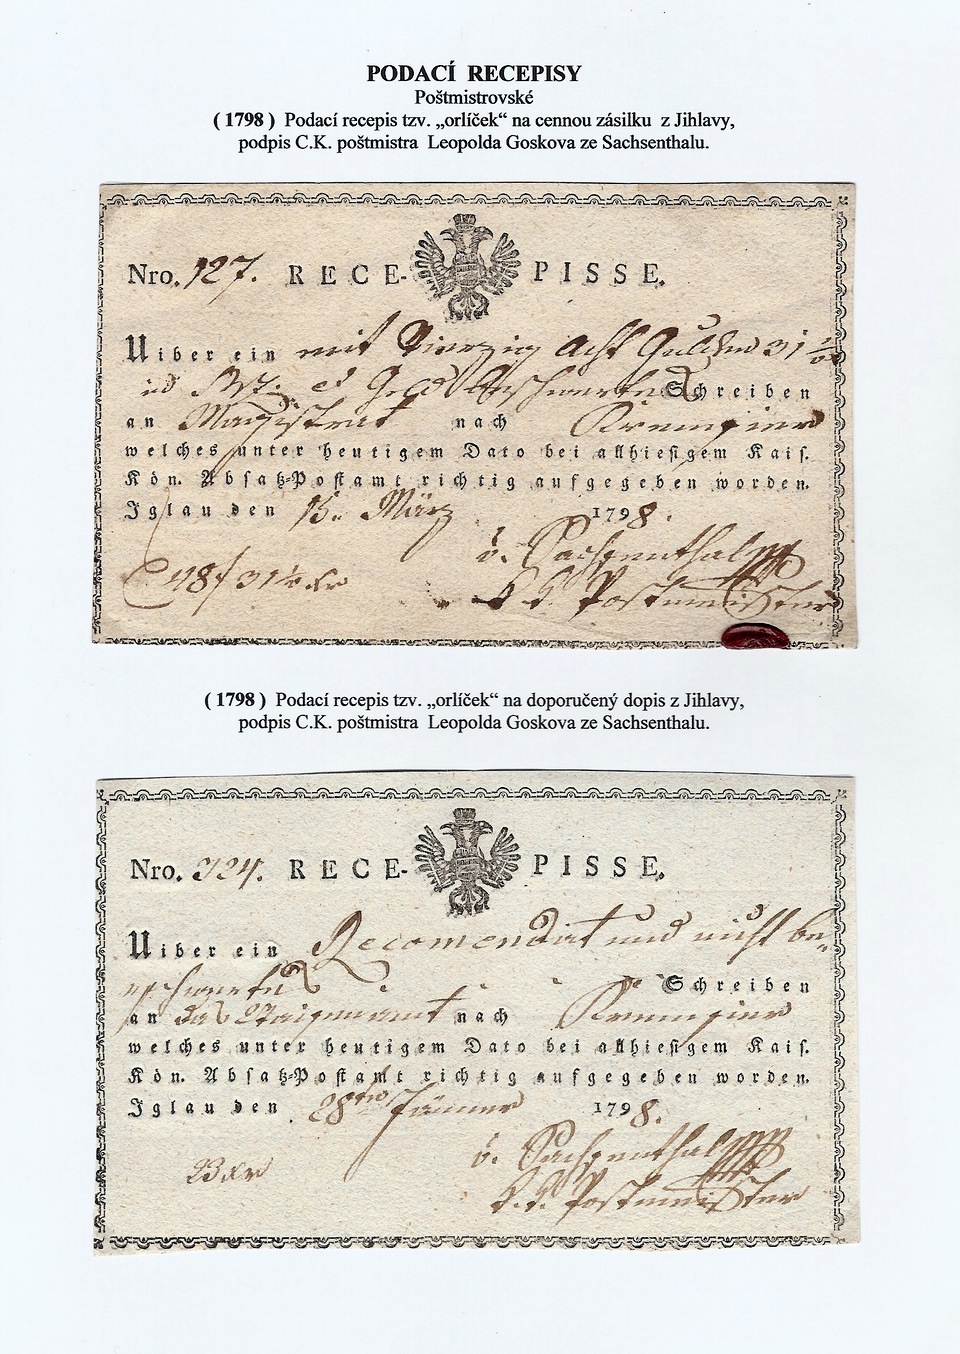 PODACÍ RECEPISY
Poštmistrovské
( 1798 ) Podací recepis tzv. „orlíček“ na cennou zásilku z Jihlavy,
podpis C.K. poštmistra Leopolda Goskova ze Sachsenthalu.
Nro. 127. RECE- PISSE.
Uiber ein mit Vierzig Acht Gulden 31
Schreiben
an Magistrat nach Kremsier
welches unter heutigem Dato bei allhiesigem Kais.
Kön. Absatz-Postamt richtig aufgegeben worden.
Iglau den 13. März 1798.
v. Sachsenthal
48 f 31 k. k. Postmeister
( 1798 ) Podací recepis tzv. „orlíček“ na doporučený dopis z Jihlavy,
podpis C.K. poštmistra Leopolda Goskova ze Sachsenthalu.
Nro. 724. RECE- PISSE.
Uiber ein Recomendirt und nicht be-
schwertes Schreiben
an das Waisenamt nach Kremsier
welches unter heutigem Dato bei allhiesigem Kais.
Kön. Absatz-Postamt richtig aufgegeben worden.
Iglau den 28ten Jänner 1798.
v. Sachsenthal
k. k. Postmeister